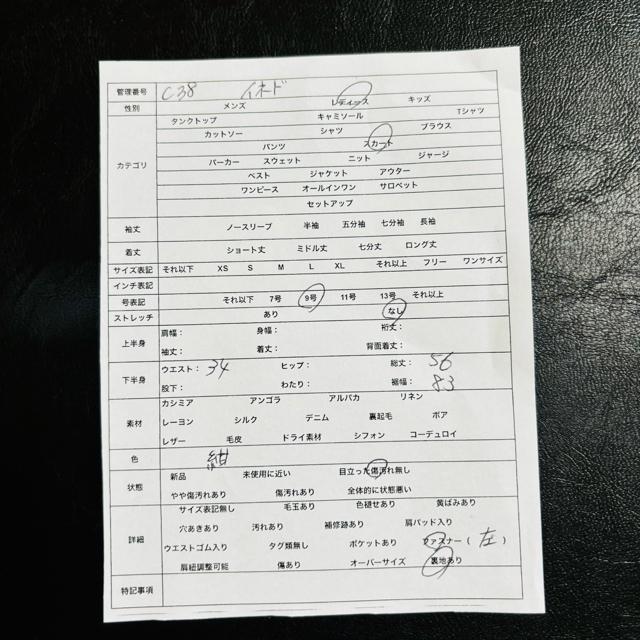 管理番号 C38 イネド
性別 メンズ レディース キッズ
タンクトップ キャミソール Tシャツ
カットソー シャツ ブラウス
パンツ スカート
カテゴリ パーカー スウェット ニット ジャージ
ベスト ジャケット アウター
ワンピース オールインワン サロペット
セットアップ
袖丈 ノースリーブ 半袖 五分袖 七分袖 長袖
着丈 ショート丈 ミドル丈 七分丈 ロング丈
サイズ表記 それ以下 XS S M L XL それ以上 フリー ワンサイズ
インチ表記
号表記 それ以下 7号 9号 11号 13号 それ以上
ストレッチ あり なし
上半身 肩幅： 身幅： 裄丈：
袖丈： 着丈： 背面着丈：
下半身 ウエスト：34 ヒップ： 総丈：56
股下： わたり： 裾幅：83
カシミア アンゴラ アルパカ リネン
素材 レーヨン シルク デニム 裏起毛 ボア
レザー 毛皮 ドライ素材 シフォン コーデュロイ
色 紺
状態 新品 未使用に近い 目立った傷汚れ無し
やや傷汚れあり 傷汚れあり 全体的に状態悪い
サイズ表記無し 毛玉あり 色褪せあり 黄ばみあり
穴あきあり 汚れあり 補修跡あり 肩パッド入り
詳細 ウエストゴム入り タグ類無し ポケットあり ファスナー（左）
肩紐調整可能 傷あり オーバーサイズ 裏地あり
特記事項